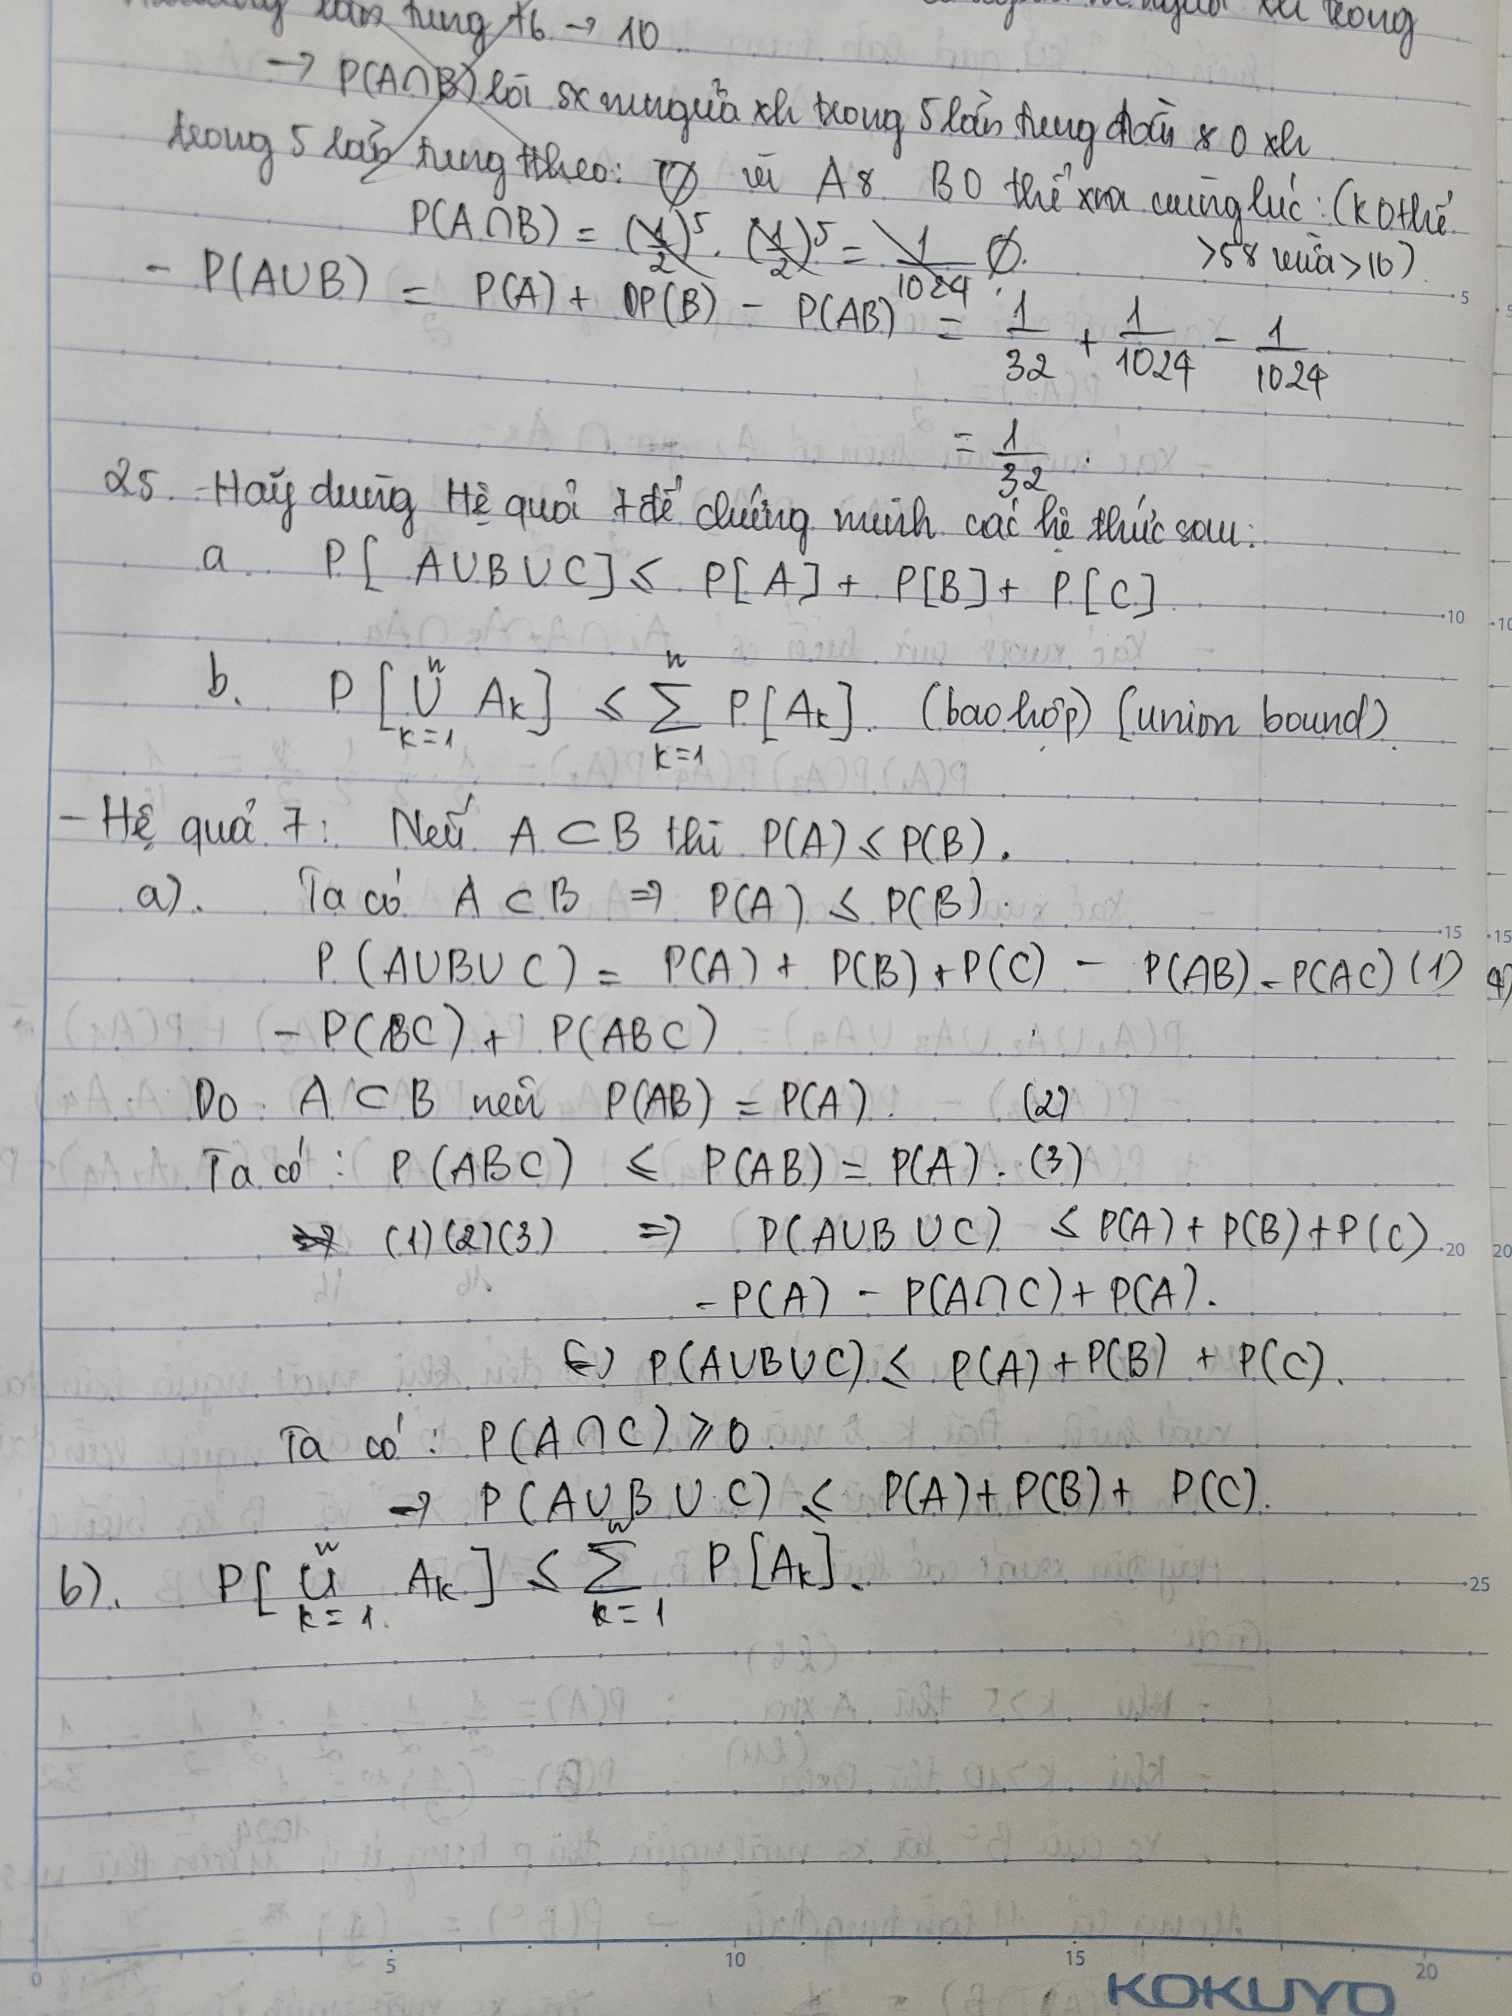 lần tung t6 → 10
xh trong
→ P(A∩B) lời sx mngửa xh trong 5 lần tung đầu & 0 xh
trong 5 lần tung theo: ∅ vì A & B 0 thể xra cùng lúc: (k0 thể
P(A∩B) = (1/2)^5 . (1/2)^5 = 1/1024 ∅. >5 & vừa >10)
- P(A∪B) = P(A) + P(B) - P(AB) = 1/32 + 1/1024 - 1/1024
= 1/32.
25. Hãy dùng Hệ quả 7 để chứng minh các hệ thức sau:
a. P[A∪B∪C] ≤ P[A] + P[B] + P[C]
b. P[⋃_{k=1}^{n} A_k] ≤ ∑_{k=1}^{n} P[A_k]. (bao hợp) (union bound)
- Hệ quả 7: Nếu A ⊂ B thì P(A) ≤ P(B).
a). Ta có A ⊂ B => P(A) ≤ P(B).
P(A∪B∪C) = P(A) + P(B) + P(C) - P(AB) - P(AC) (1)
- P(BC) + P(ABC)
Do A ⊂ B nên P(AB) = P(A). (2)
Ta có: P(ABC) ≤ P(AB) = P(A). (3)
(1)(2)(3) => P(A∪B∪C) ≤ P(A) + P(B) + P(C)
- P(A) - P(A∩C) + P(A).
(=) P(A∪B∪C) ≤ P(A) + P(B) + P(C).
Ta có: P(A∩C) ≥ 0
→ P(A∪B∪C) ≤ P(A) + P(B) + P(C).
b). P[⋃_{k=1}^{n} A_k] ≤ ∑_{k=1}^{n} P[A_k].
5
10
15
20
25
0 5 10 15 20
KOKUYO